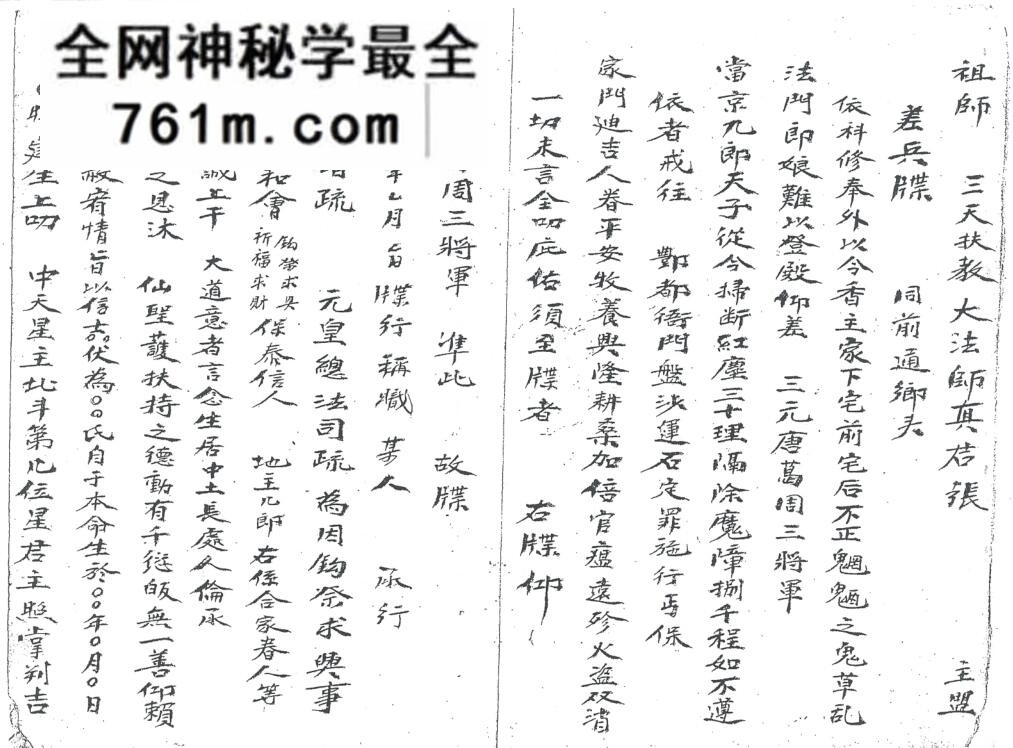 全网神秘学最全
761m.com
祖師　三天扶教大法師真君張　主盟
差兵牒　同前通鄉夫
依科修奉外以今香主家下宅前宅后不正魍魎之鬼草乱
法門郎娘難以登殿仰差　三元唐葛周三將軍
當京九郎天子從今掃断紅塵三十理隔除魔障捌千程如不遵
依者戒往　酆都衙門盤沙運石定罪施行焉保
家門廸吉人眷平安牧養興隆耕桑加倍官瘟遠殄火盗双消
一切未言全叨庇佑須至牒者　右牒仰
周三將軍　準此　故牒
年乙月　日牒行稱職　某人　承行
疏　元皇總法司疏　為因鈞祭求興事
和會　鈞祭求具祈福求財　保泰信人　地主九郎　右係合家眷人等
誠上干　大道意者言念生居中土長處人倫承
之恩沐　仙聖護扶持之德動有千愆皈無一善仰賴
情旨以信士伏為〇〇氏自于本命生於〇〇年〇月〇日
生上叨　中天星主北斗第几位星君主照掌判吉